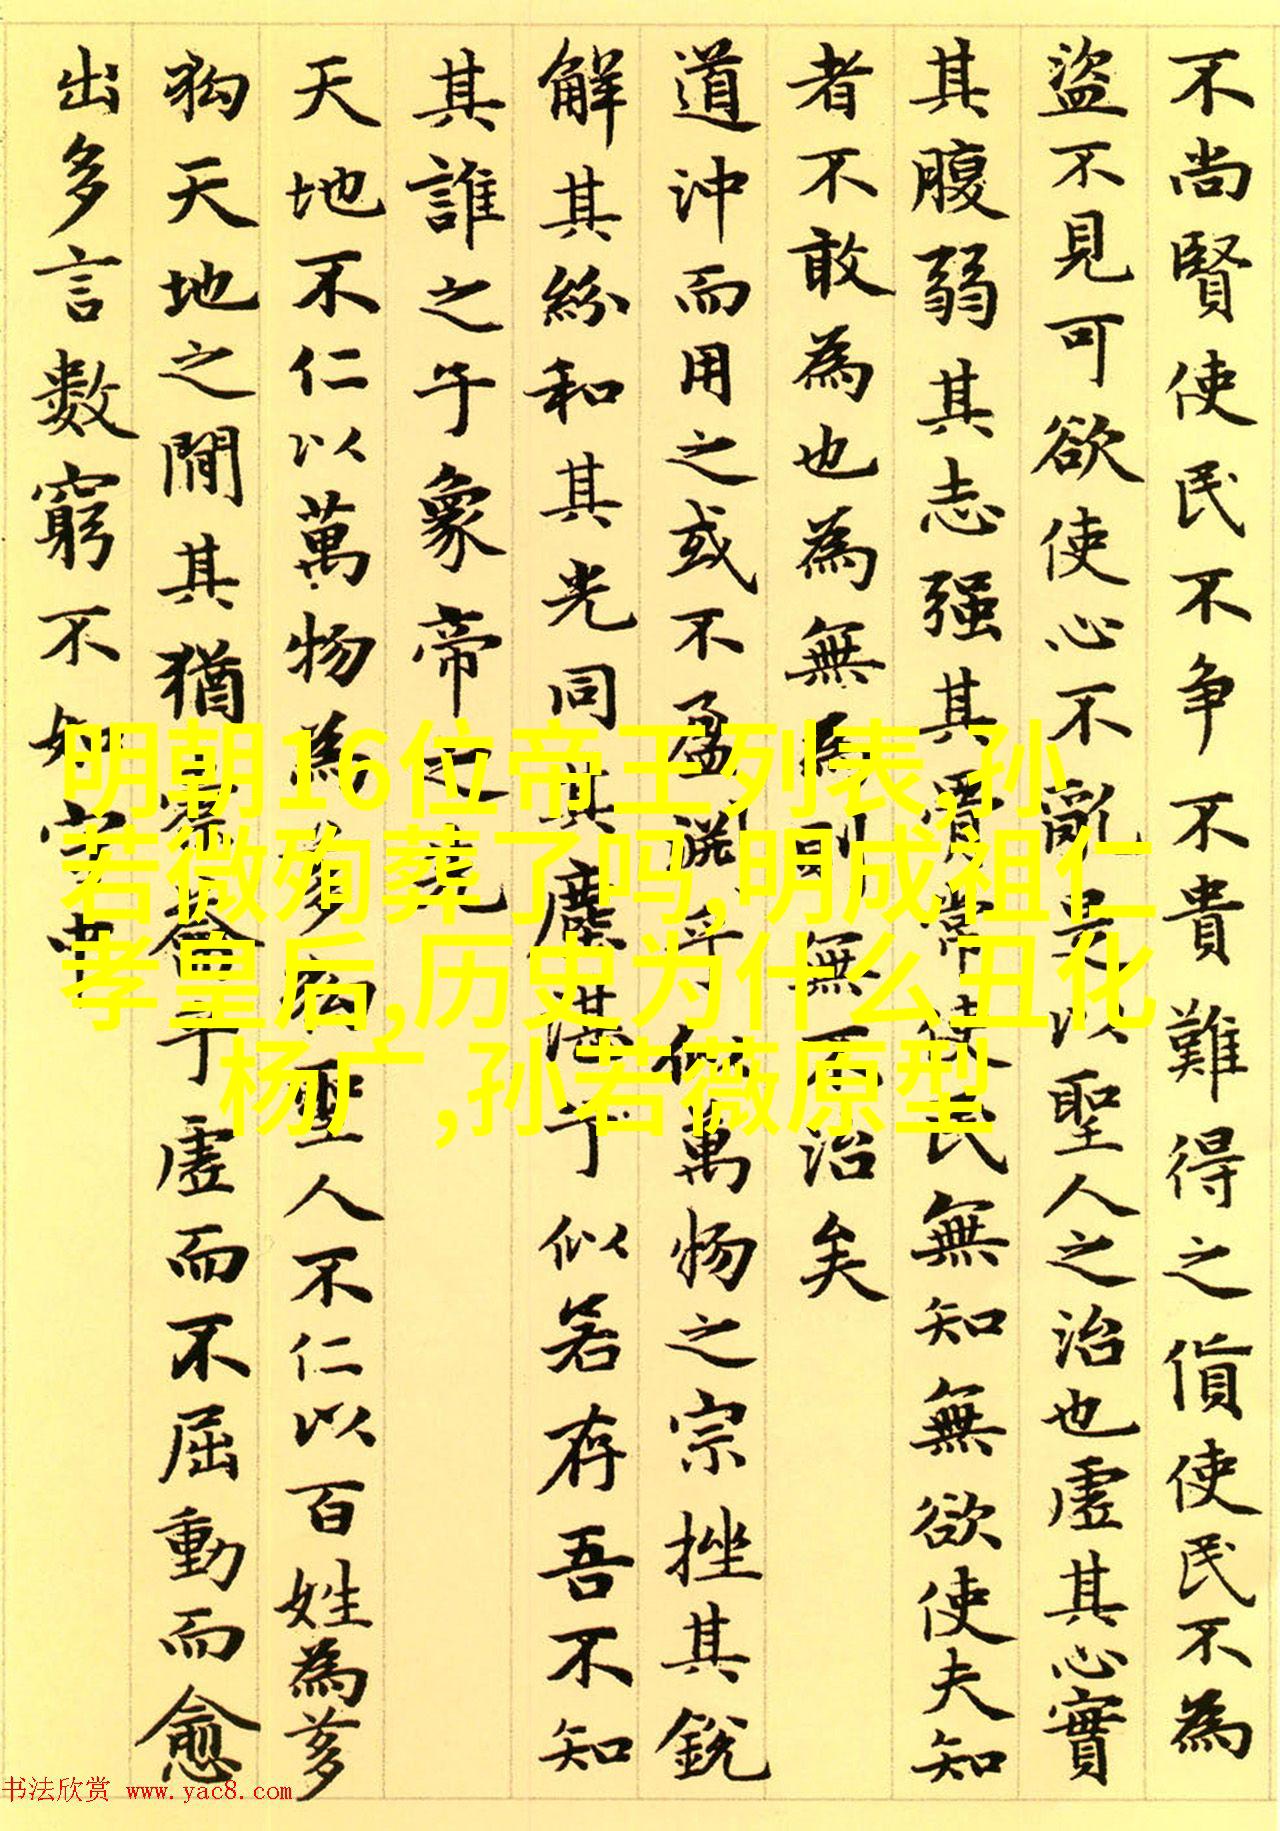 不尚賢使民不争不貴難得之貨使民不為
盜不見可欲使心不亂是以聖人之治也虛其心實
其腹弱其志强其骨常使民無知無欲使夫知
者不敢為也為無為則無不治矣
道沖而用之或不盈淵乎似萬物之宗挫其銳
解其紛和其光同其塵湛乎似若存吾不知
其誰之子象帝之先
天地不仁以萬物為芻狗聖人不仁以百姓為芻
狗天地之間其猶橐籥乎虛而不屈動而愈
出多言數窮不如守中
明朝16位帝王列表,孙
若微殉葬了吗,明成祖仁
孝皇后,历史为什么丑化
杨广,孙若薇原型
书法欣赏 www.yac8.com